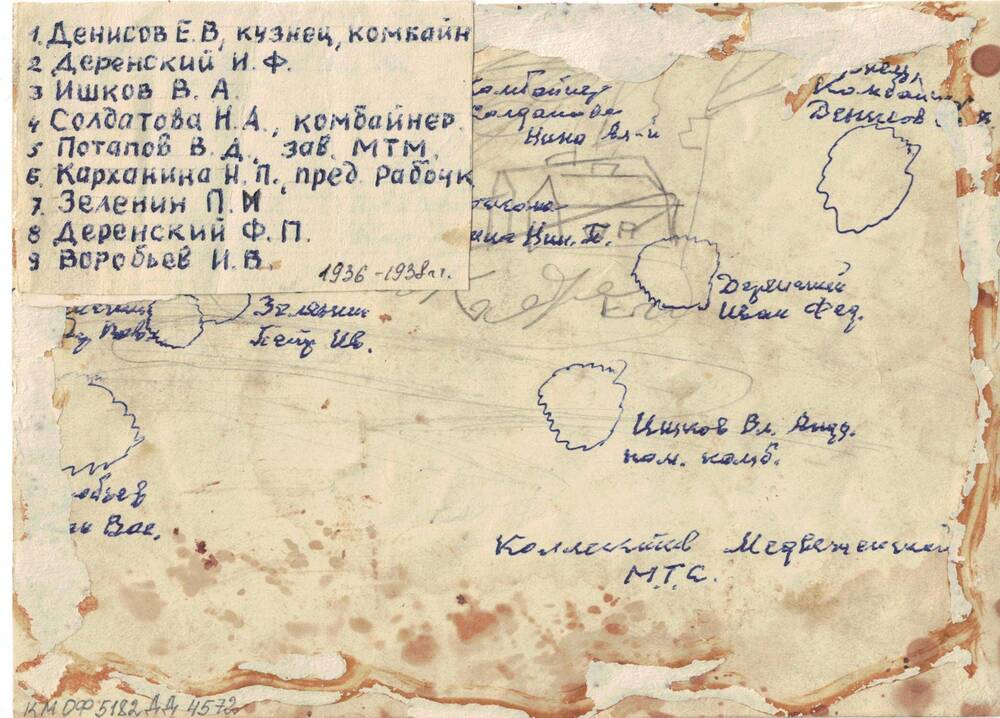 1. Денисов Е.В, кузнец, комбайн
2 Деренский И.Ф.
3 Ишков В.А.
4 Солдатова Н.А., комбайнер.
5 Потапов В.Д., зав. МТМ.
6. Карханина Н.П., пред. Рабочк
7. Зеленин П.И
8 Деренский Ф.П.
9 Воробьев И.В.
1936-1938гг.
Комбайнер
Солдатова
Нина Вл-й
Нин. П.
Комбайнер
Денисов
Деренский
Иван Фед.
Зеленин
Петр Ив.
Ишков Вл. Андр.
пом. комб.
обьев
Вас.
Коллектив Медвеженской
М.Т.С.
КМ ОФ 5182 ДД 4572